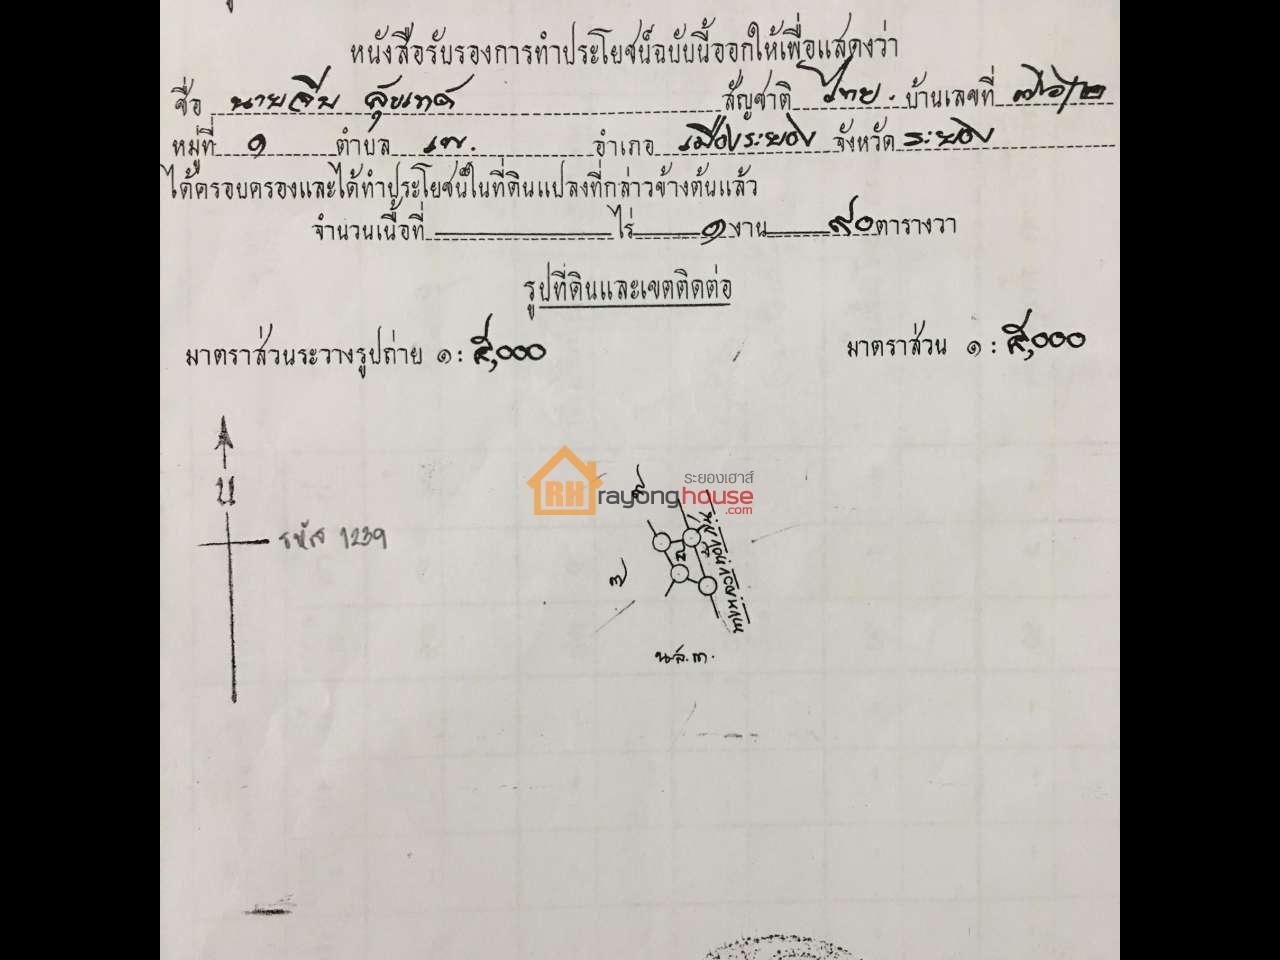 หนังสือรับรองการทำประโยชน์ฉบับนี้ออกให้เพื่อแสดงว่า
ชื่อ นายเจิม สุขเทศ สัญชาติ ไทย. บ้านเลขที่ ๗๖/๒
หมู่ที่ ๑ ตำบล เพ. อำเภอ เมืองระยอง จังหวัด ระยอง
ได้ครอบครองและได้ทำประโยชน์ในที่ดินแปลงที่กล่าวข้างต้นแล้ว
จำนวนเนื้อที่ ไร่ ๑ งาน ๙๐ ตารางวา
รูปที่ดินและเขตติดต่อ
มาตราส่วนระวางรูปถ่าย ๑ : ๕,๐๐๐
มาตราส่วน ๑ : ๕,๐๐๐
น
รหัส 1239
RH rayonghouse.com
ระยองเฮาส์
น.ส.๓.